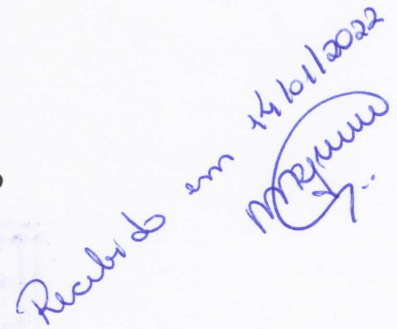 Recebido em 14/01/2022